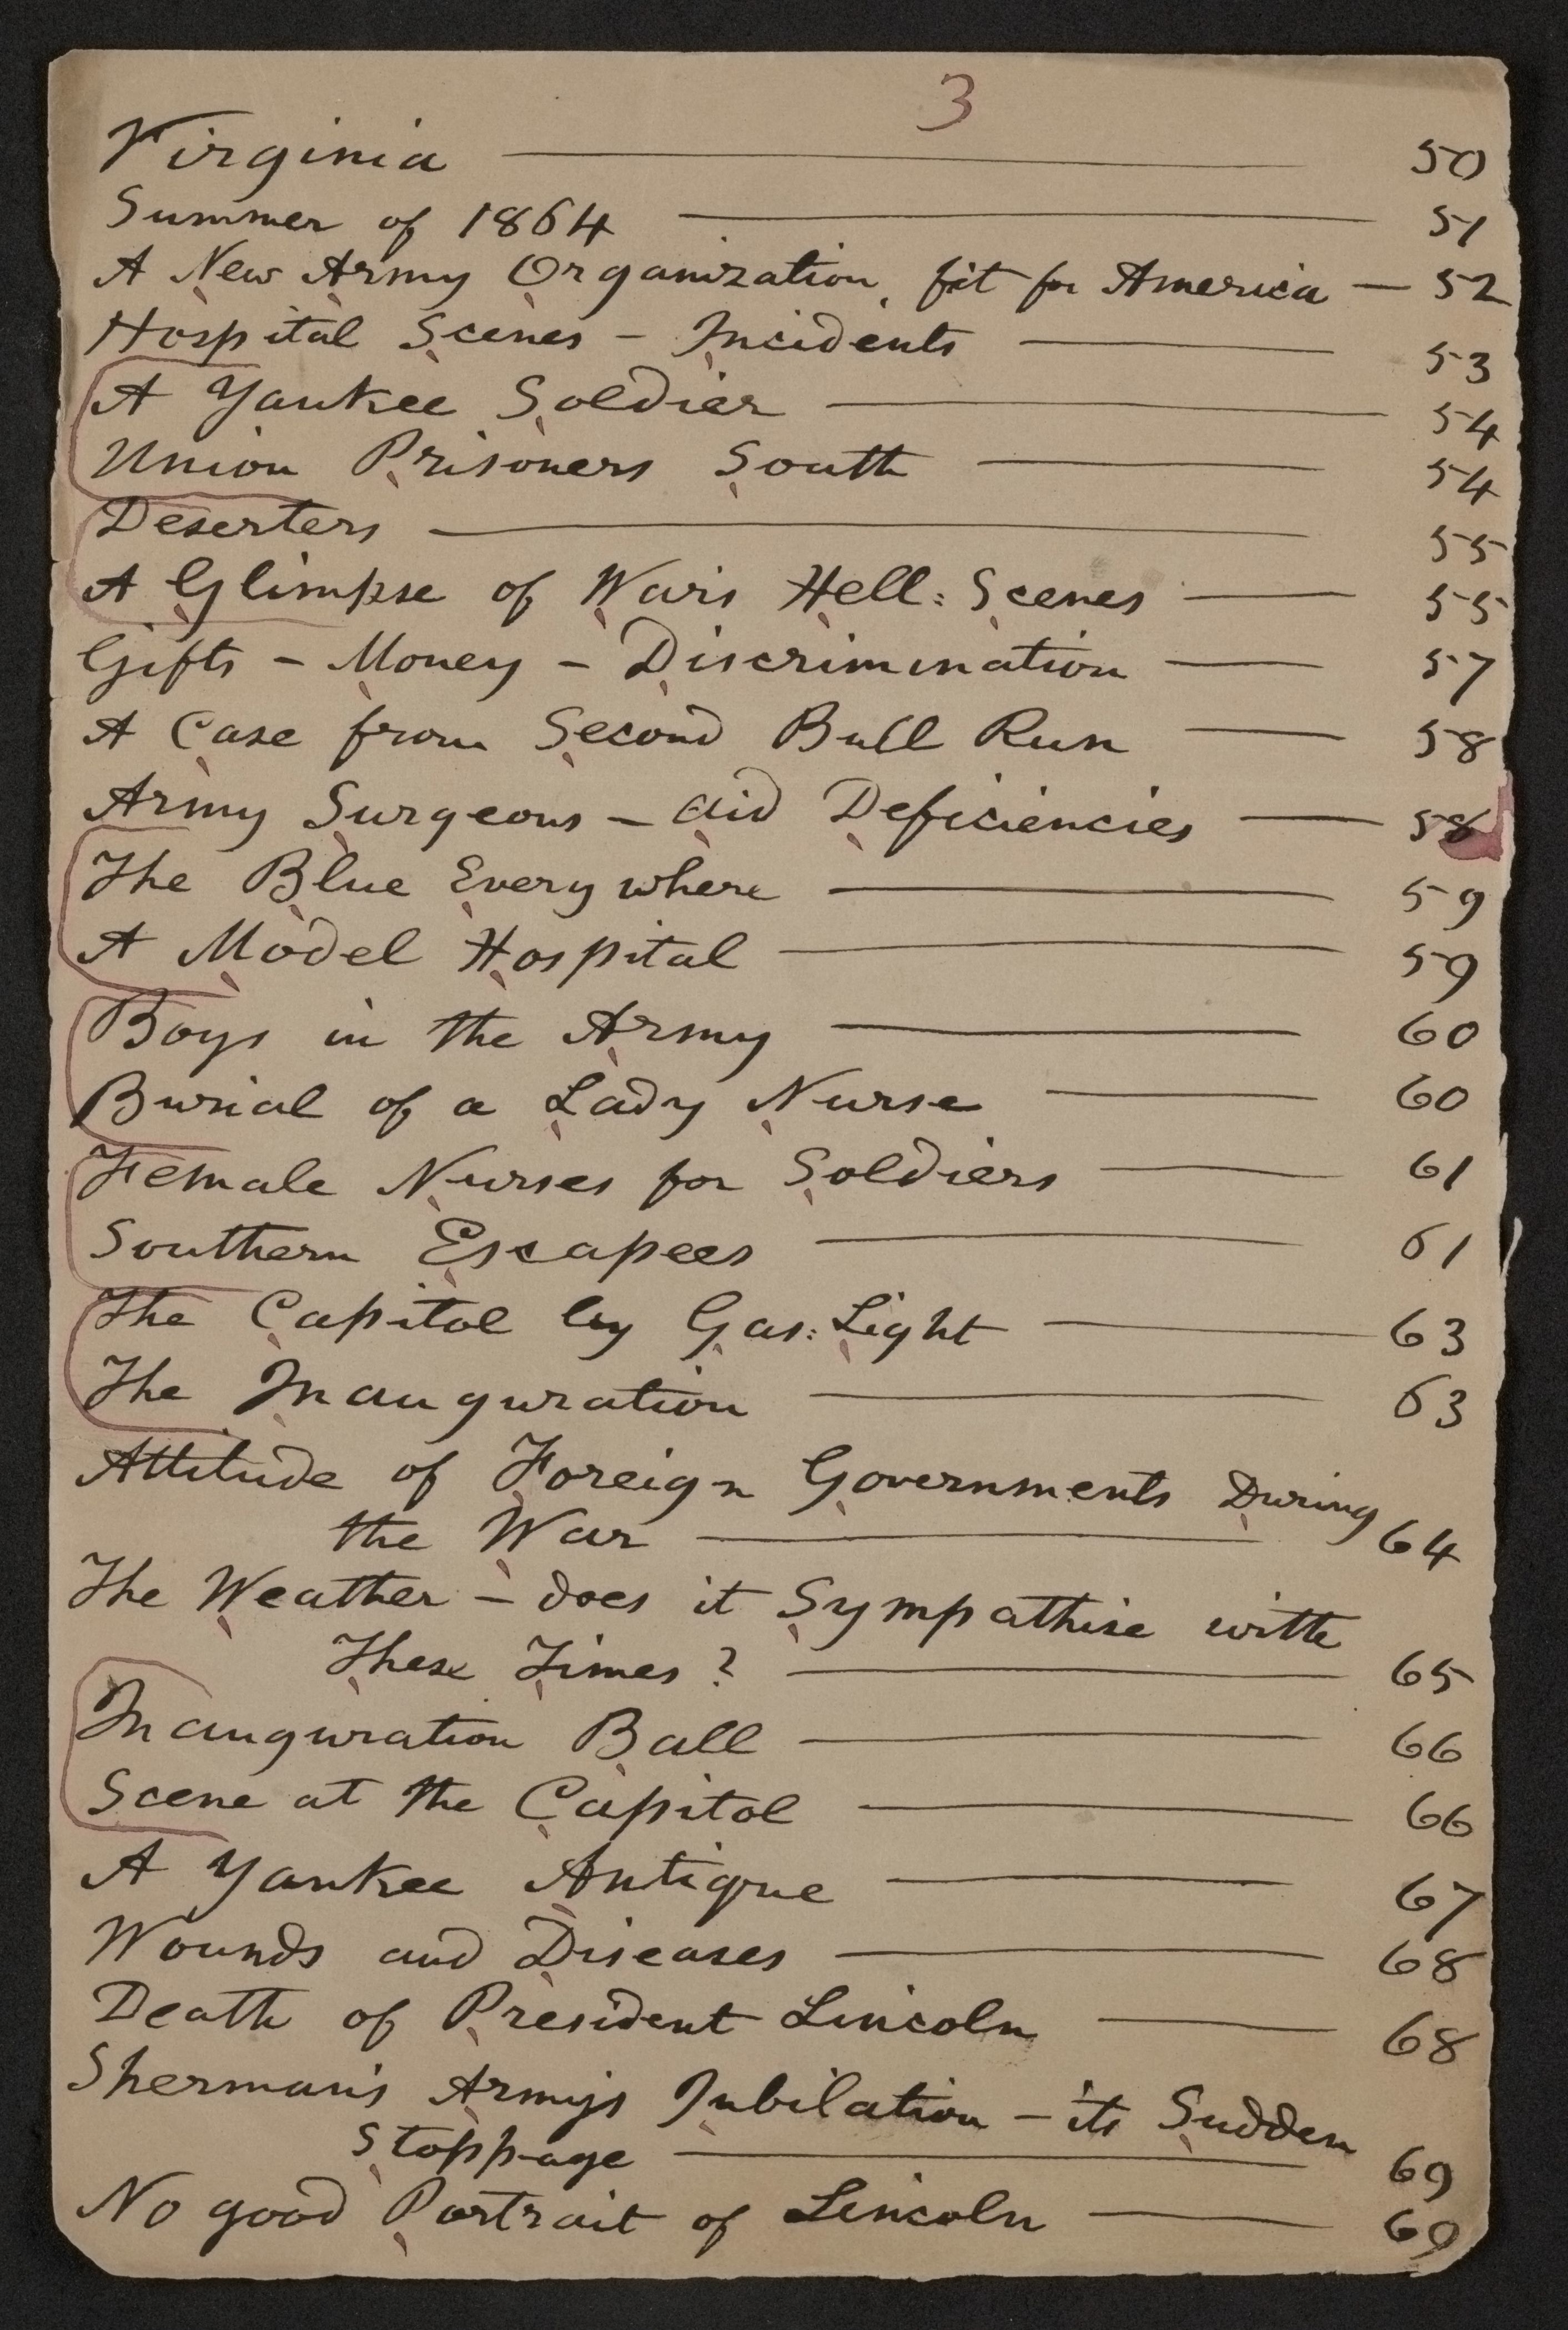 3
Virginia — 50
Summer of 1864 — 51
A New Army Organization, fit for America — 52
Hospital Scenes – Incidents — 53
A Yankee Soldier — 54
Union Prisoners South — 54
Deserters — 55
A Glimpse of War's Hell-Scenes — 55
Gifts – Money – Discrimination — 57
A Case from Second Bull Run — 58
Army Surgeons – aid Deficiencies — 58
The Blue Everywhere — 59
A Model Hospital — 59
Boys in the Army — 60
Burial of a Lady Nurse — 60
Female Nurses for Soldiers — 61
Southern Escapees — 61
The Capitol by Gas-Light — 63
The Inauguration — 63
Attitude of Foreign Governments During
the War — 64
The Weather – does it Sympathise with
These Times? — 65
Inauguration Ball — 66
Scene at the Capitol — 66
A Yankee Antique — 67
Wounds and Diseases — 68
Death of President Lincoln — 68
Sherman's Army's Jubilation – its Sudden
Stoppage — 69
No good Portrait of Lincoln — 69